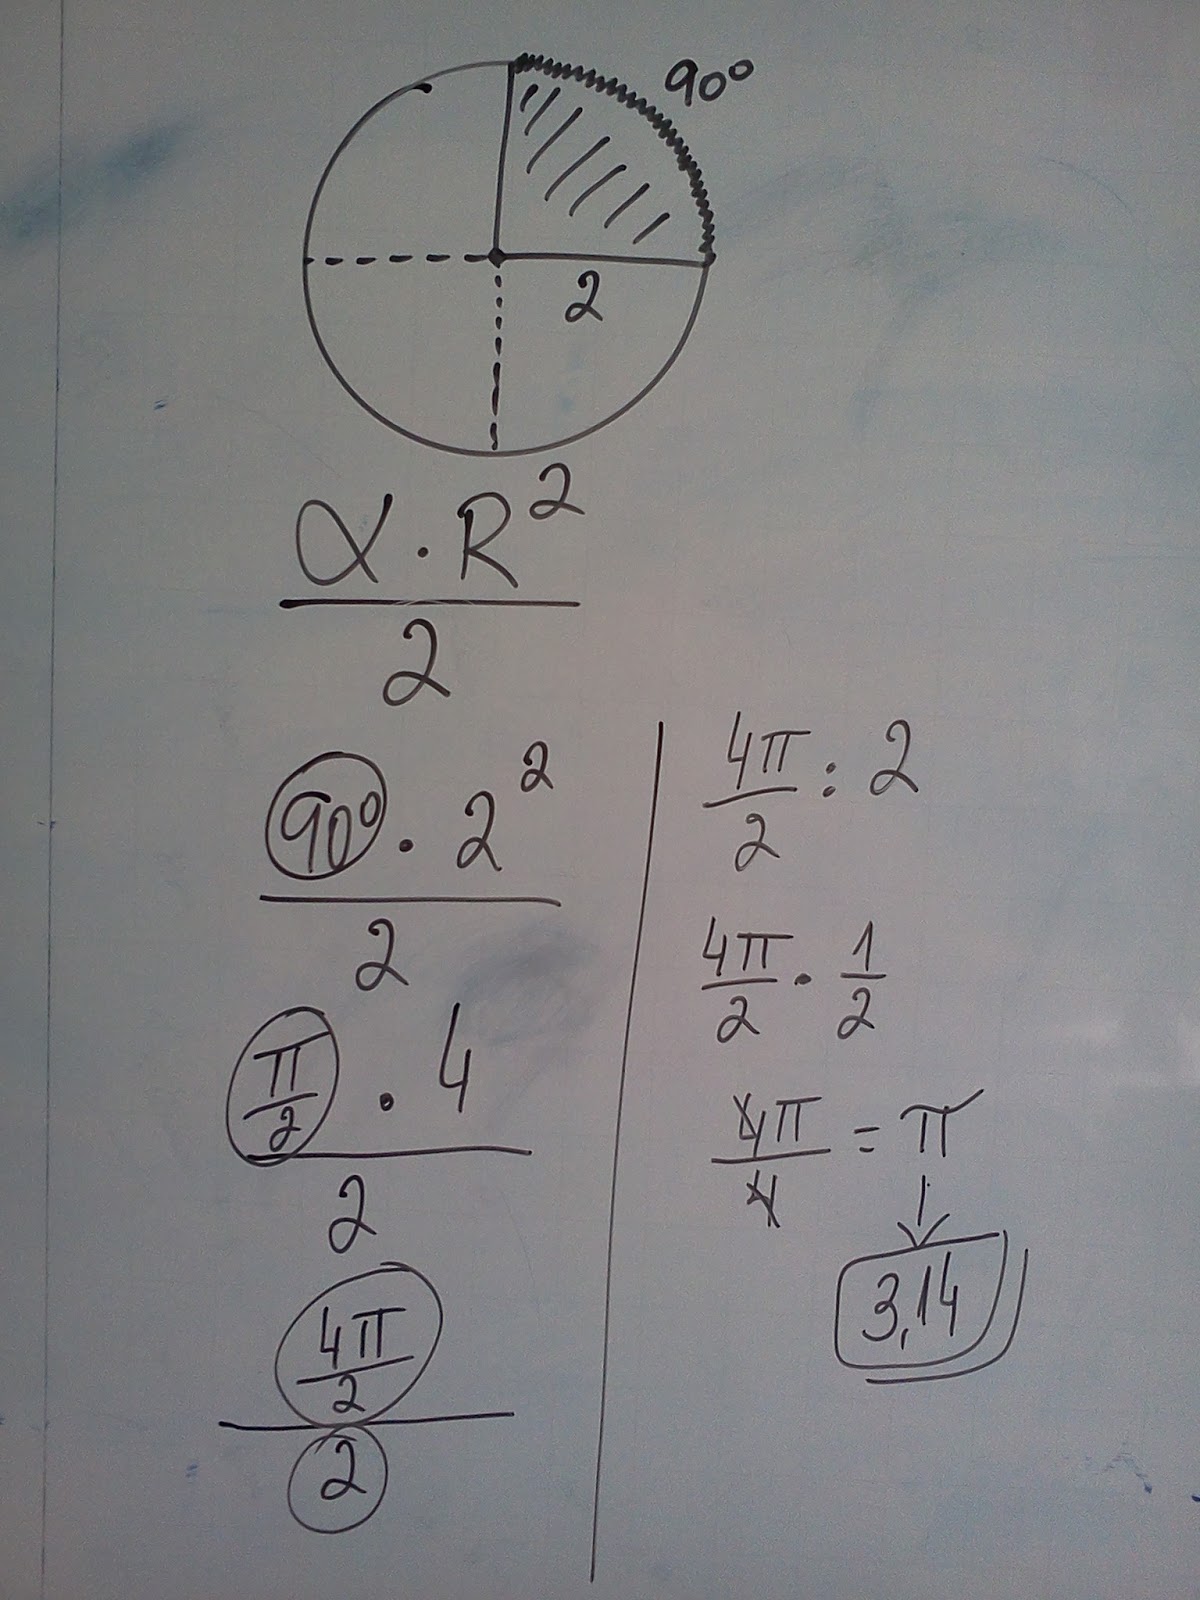 90°
2
α · R²
2
90° · 2²
2
π/2 · 4
2
4π/2
2
4π/2 : 2
4π/2 · 1/2
4π/4 = π
3,14